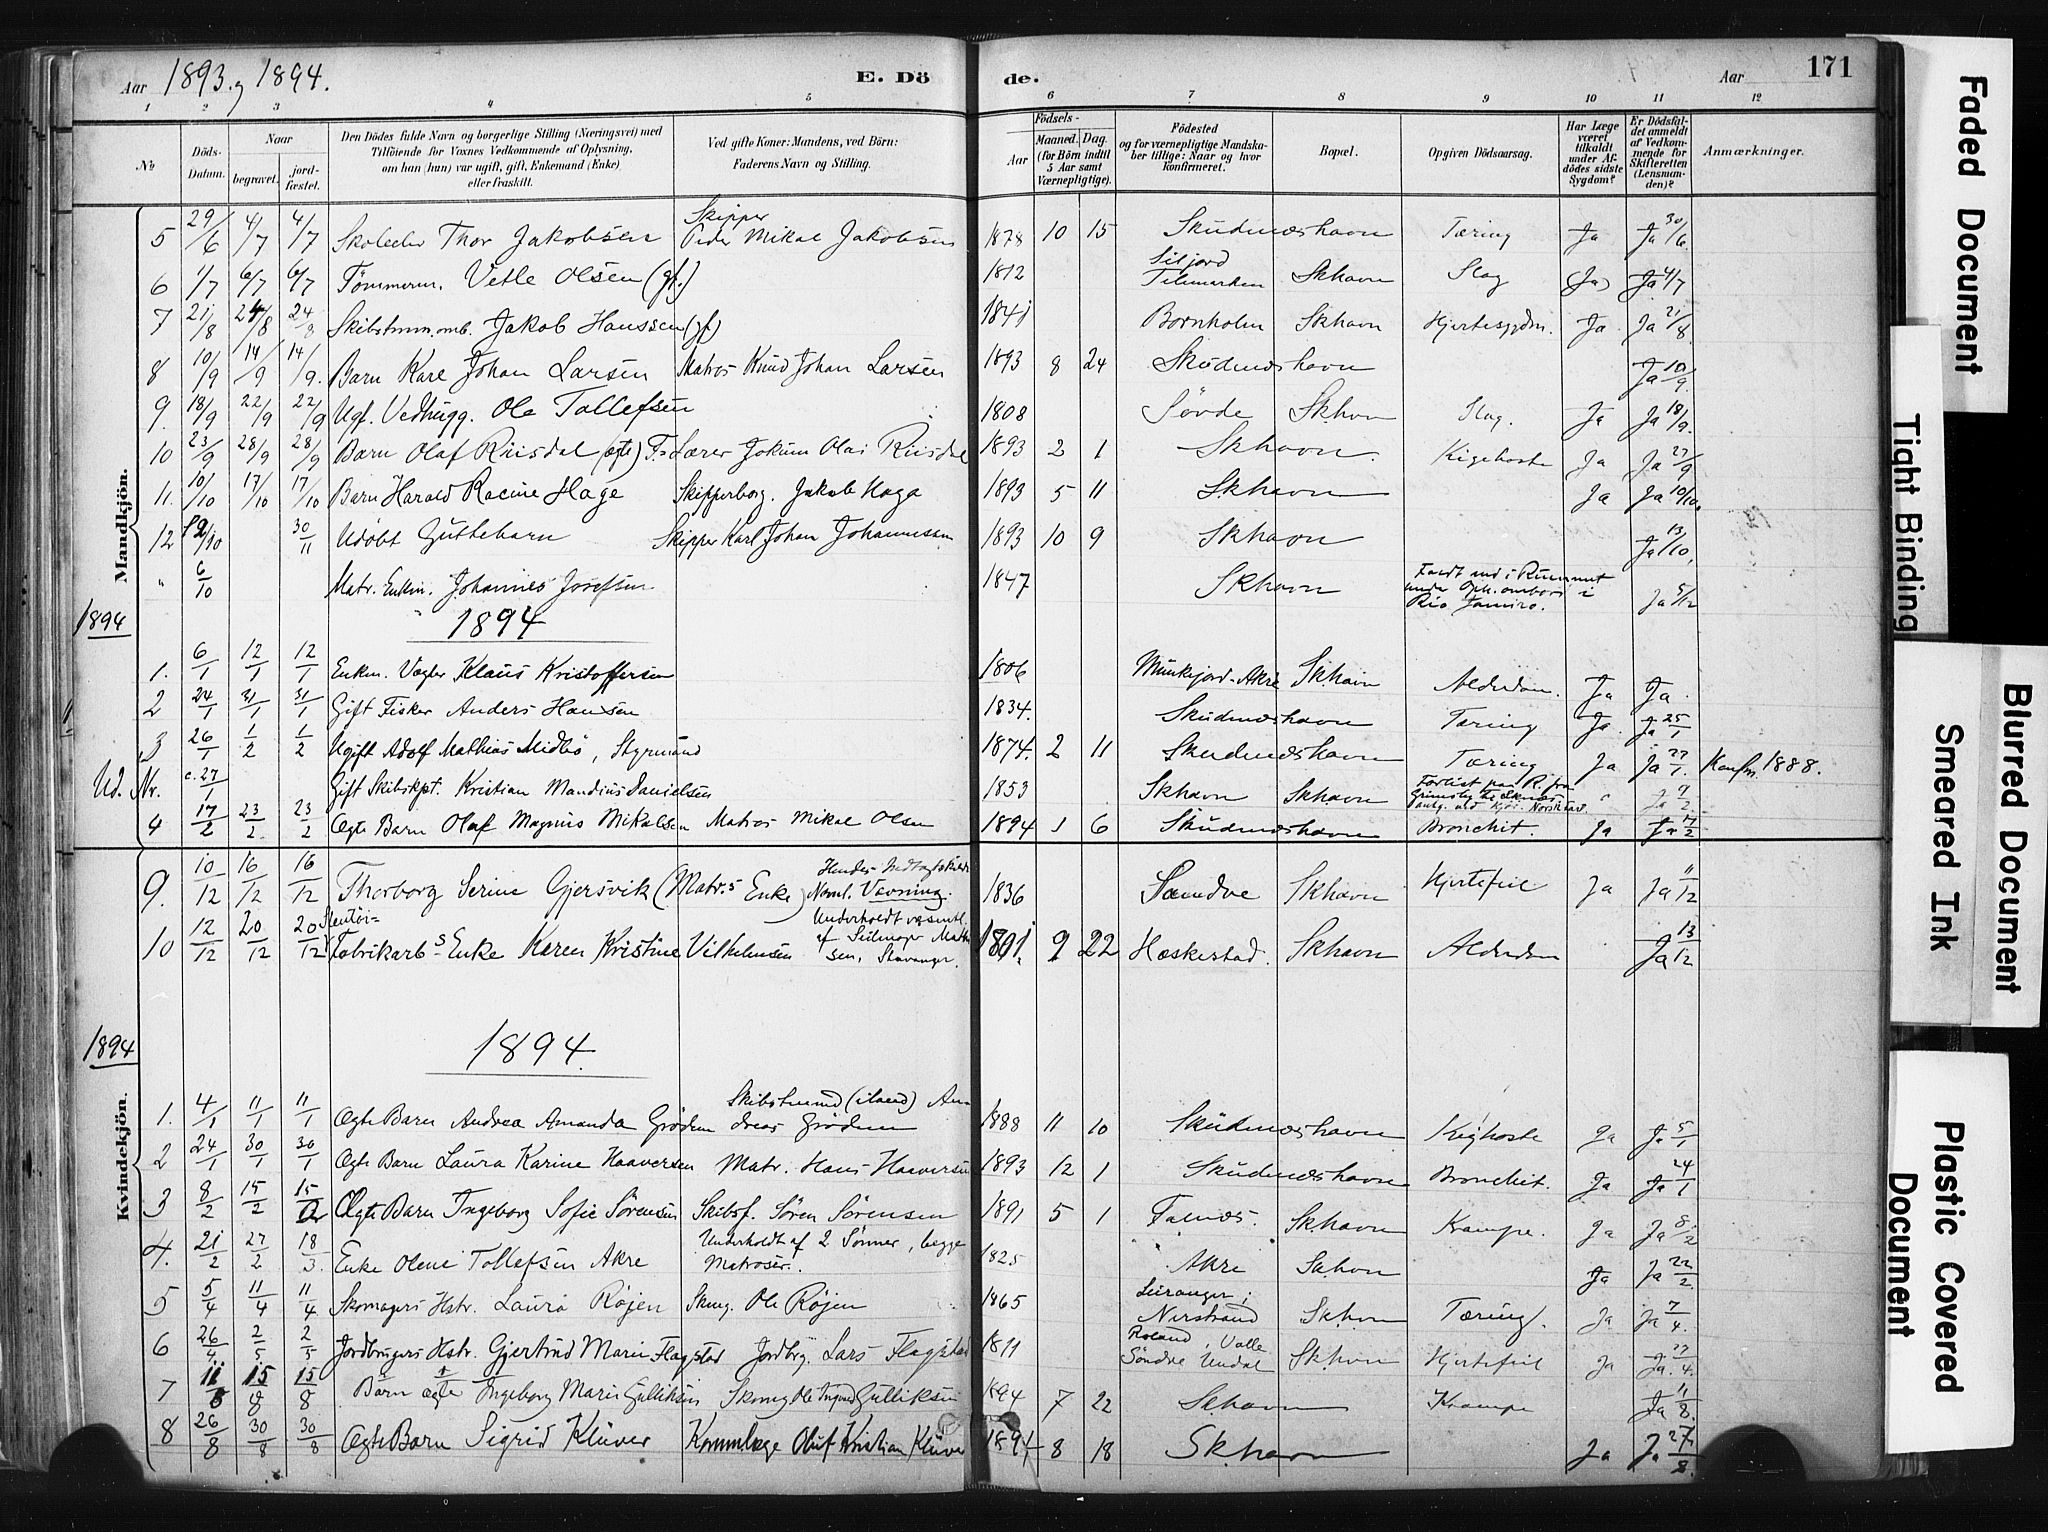 Aar 1893 og 1894. E. Dö de. Aar 171
1 2 3 4 5 6 7 8 9 10 11 12
No Döds-Datum. Naar begravet. jord-fæstet. Den Dödes fulde Navn og borgerlige Stilling (Næringsvei) med Tilföiende for Voxnes Vedkommende af Oplysning, om han (hun) var ugift, gift, Enkemand (Enke) eller fraskilt. Ved gifte Koner: Mandens, ved Börn: Faderens Navn og Stilling. Födsels- Aar Maaned. Dag. (for Börn indtil 5 Aar samt Værnepligtige). Födested og for værnepligtige Mandskaber tillige: Naar og hvor konfirmeret. Bopæl. Opgiven Dödsaarsag. Har Læge været tilkaldt under Afdödes sidste Sygdom? Er Dödsfaldet anmeldt af Vedkommende for Skifteretten (Lensmanden)? Anmærkninger.
Mandkjön.
5 29/6 4/7 4/7 Skoleelev Thor Jakobsen Skipper Peder Mikal Jakobsen 1878 10 15 Skudneshavn Tæring Ja Ja 30/6
6 1/7 6/7 6/7 Tømmerm. Vetle Olsen (gf.) 1812 Siljord Telemarken Skhavn Slag (Ja) Ja 4/7
7 21/8 24/8 24/8 Skibstmm.omb. Jakob Hanssen (gf) 1841 Bornholm Skhavn Hjertesygdm. Ja Ja 21/8
8 10/9 14/9 14/9. Barn Karl Johan Larsen Matros Knud Johan Larsen 1893 8 24 Skudneshavn Ja 10/9.
9. 18/9 22/9 22/9 Ugf. Vedhugg. Ole Tollefsen 1808 Søvde Skhvn Slag. Ja Ja 18/9.
10 23/9 28/9 28/9 Barn Olaf Riisdal (ægte) F.: Lærer Jokum Olai Riisdal 1893 2 1 Skhavn. Kigehoste Ja Ja 27/9
11. 10/10 17/10 17/10 Barn Harald Racine Hage Skipperborg. Jakob Haga 1893 5 11 Skhavn Ja Ja 10/10.
12 12/10 30/11 Udöbt Guttebarn Skipper Karl Johan Johannessen 1893 10 9 Skhavn Ja 13/10.
" 6/10 Matr. Enkm. Johannes Josefsen 1847 Skhavn Faldt ned i Rummet under Oph. ombord i Rio Janeiro. Ja 5/12
1894 1894
1. 6/1 12/1 12/1 Enkm. Vægter Klaus Kristoffersen 1806 Munkejord-Akre Skhavn Alderdom. Ja Ja.
2 24/1 31/1 31/1 Gift Fisker Anders Hansen 1834. Skudneshavn Tæring Ja. Ja 25/1
3 26/1 1/2 1/2 Ugift Adolf Mathias Midbö, Styrmand 1874. 2 11 Skudneshavn Tæring Ja Ja 27/1. Konfm. 1888.
Ud. Nr. c. 27/1 Gift Skibskpt. Kristian Mandius Danielsen 1853 Skhavn Skhavn Forlist paa R. fra Grimsby " Ja 9/2
4 17/2 23/2 23/2 Ægte Barn Olaf Magnus Mikalsen Matros Mikal Olsen 1894 1 6 Skudneshavn Bronchit. Ja Ja 17/2
9. 10/12 16/12 16/12 Thorborg Serine Gjersvik (Matr.s Enke) Hendes Nedbgtskilde Noml. Vævning. 1836 Sandve Skhavn Hjertefeil Ja Ja 11/12
10 12/12 20/12 20/12 Stentöi-Fabrikarb.s Enke Karen Kristine Vilhelmsen Underholdt væsentl. af Seilmager Mathsen, Stavanger. 1801. 9 22 Heskestad. Skhavn Alderdom Ja 13/12
1894 1894.
Kvindekjön.
1. 4/1 11/1 11/1 Ægte Barn Andrea Amanda Grödem Skibstmmd (iland) Andreas Grödem 1888 11 10 Skudneshavn Kighoste Ja Ja 5/1
2 24/1 30/1 30/1 Ægte Barn Laura Karine Haaversen Matr. Hans Haaversen 1893 12 1 Skudneshavn Bronchit. Ja Ja 24/1
3 8/2 15/2 15/2 Ægte Barn Ingeborg Sofie Sörensen Skibsf. Sören Sörensen 1891 5 1 Falnes. Skhavn Krampe. Ja Ja 8/2
4. 21/2 27/2 18/3. Enke Olene Tollefsen Akre Underholdt af 2 Sönner, begge Matroser. 1825 Akre Skhvn Ja Ja 22/2
5 5/4 11/4 11/4 Skomagers Hstr. Laura Röjen Skmg. Ole Röjen 1865 Leiranger i Nerstrand Skhvn Tæring. Ja Ja 7/4.
6 26/4 2/5 2/5 Jordbrugers Hstr. Gjertrud Marie Flagstad Jordbrg. Lars Flagstad 1811 Roland, Valle Söndre Undal Skhvn Hjertefeil Ja Ja 27/4.
7 11/8 15/8 15/8 Barn ægte Ingeborg Marie Gulliksen Skomg Ole Ingvald Gulliksen 1894 7 22 Skhavn Krampe Ja 11/8.
8 26/8 30/8 30/8 Ægte Barn Sigrid Klüver Kommlæge Oluf Kristian Klüver 1894 8 18 Skhavn Ja Ja 27/8.
Faded Document
Tight Binding
Blurred Document
Smeared Ink
Plastic Covered Document